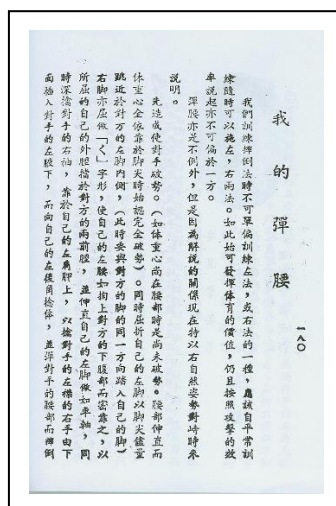 我的彈腰
一八〇
我們訓練摔倒法時不可單偏訓練左法,或右法的一種,應該自平常訓
練隨時可以施左,右兩法。如此始可發揮体育的價值,仍且按照攻擊的效
率說起亦不可偏於一方。
彈腰亦是不例外,但是因為解說的關係現在特以右自然姿勢對峙時來
說明。
先造成使對手破勢。(如体重心尚在腰部時是尚未破勢。腰部伸直而
体重心全依靠於脚尖時始認完全破勢)。同時屈折自己的左脚以脚尖儘量
跳近於對方的左脚內側,(此時要與對方的脚的同一方向踏入自己的脚)
右脚亦屈做「く」字形,使自己的左腰如拘上對方的下腹部而密靠之,以
所屈的自己的外腿擋於對方的兩前腔,並伸直自己的左脚做如車軸,同
時深擒對手的右袖,靠於自己的左肩腳上,以擒對手的左襟的右手由下
面插入對手的左腋下,而向自己的左後角捻倴,並彈對手的腰部而摔倒